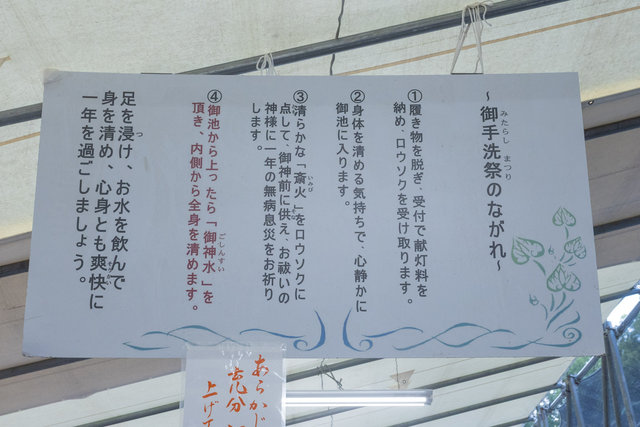 ~ 御手洗祭のながれ~
みたらし まつり
①履き物を脱ぎ、受付で献灯料を
納め、ロウソクを受け取ります。
②身体を清める気持ちで、心静かに
御池に入ります。
③清らかな「斎火」をロウソクに
いみび
点して、御神前に供え、お祓いの
神様に一年の無病息災をお祈り
します。
④御池から上ったら「御神水」を
ごしんすい
頂き、内側から全身を清めます。
足を浸け、お水を飲んで
つ
身を清め、心身とも爽快に
そうかい
一年を過ごしましょう。
あらかじ
充分
上げて